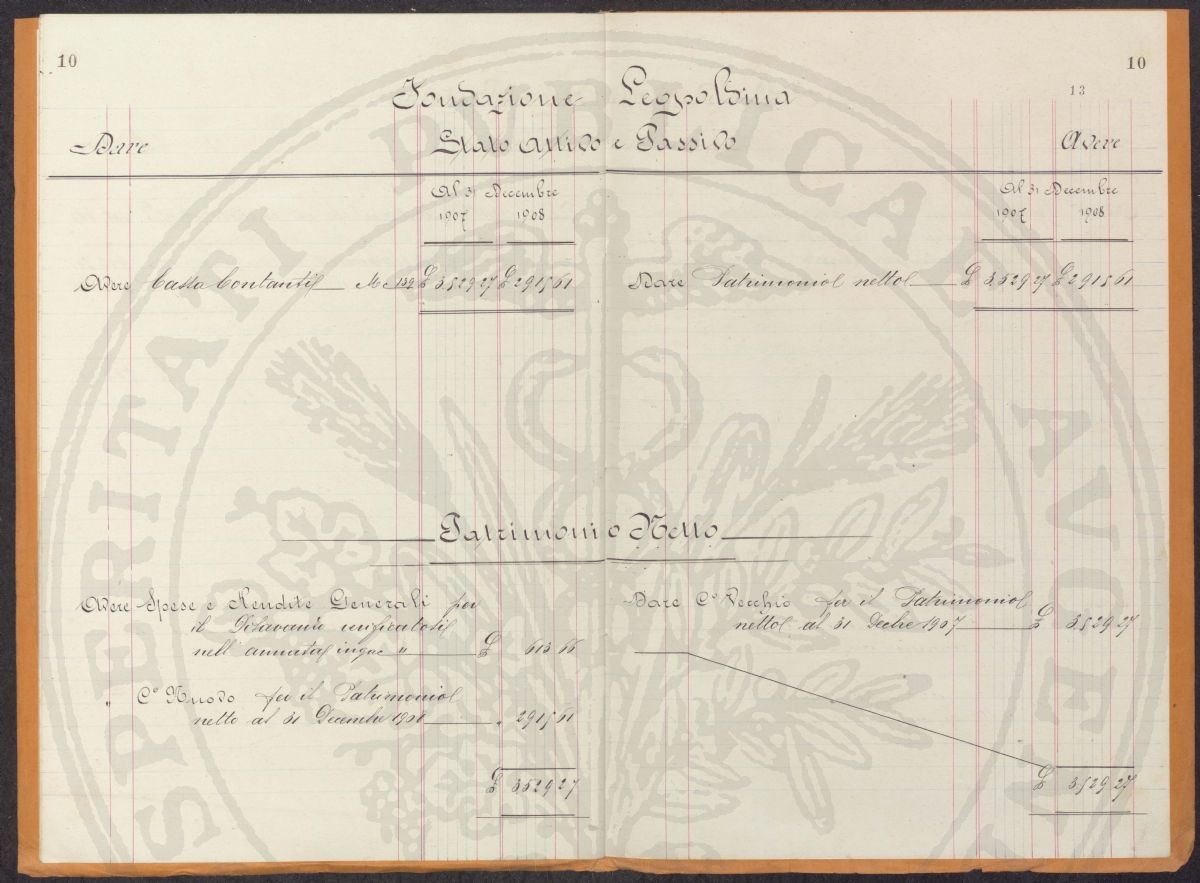 10
10
13
Fondazione Leopoldina
Dare
Stato Attivo e Passivo
Avere
Al 31 Decembre
1907 1908
Al 31 Decembre
1907 1908
Avere Cassa Contanti Mc 132 £ 3529 27 £ 2915 61
Dare Patrimonio netto £ 3529 27 £ 2915 61
Patrimonio Netto
Avere Spese e Rendite Generali per
il Disavanzo verificatosi
nell' annata £ 613 66
" Cº Nuovo per il Patrimonio
netto al 31 Decembre 1908 " 2915 61
£ 3529 27
Dare Cº Vecchio per il Patrimonio
netto al 31 Decbre 1907 £ 3529 27
£ 3529 27